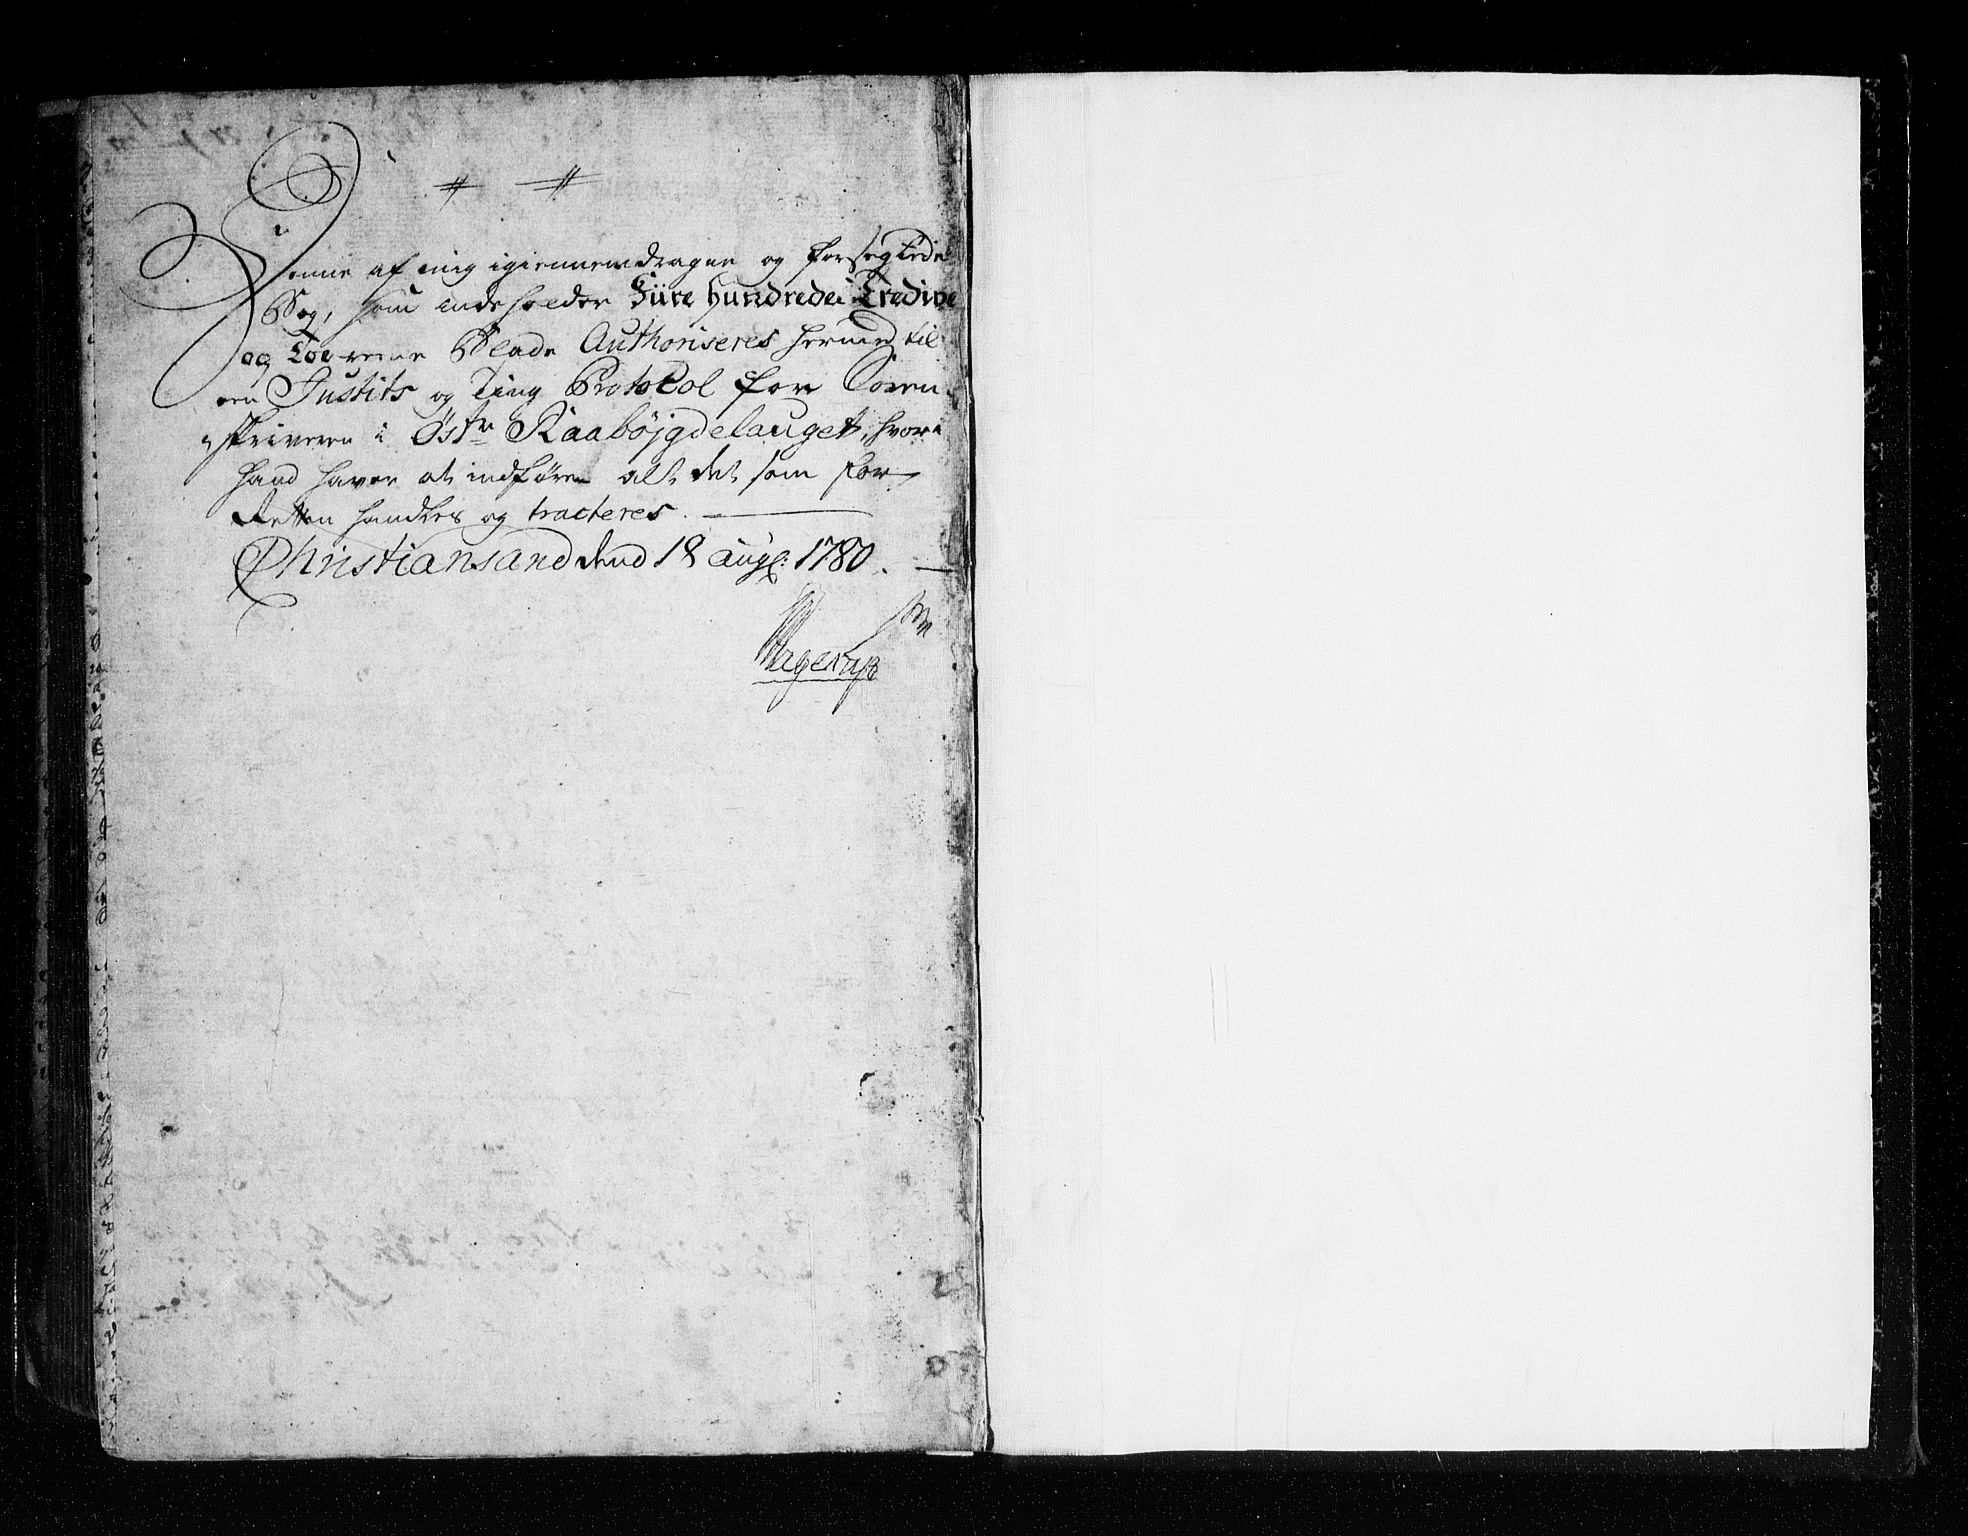 Denne af mig igiennemdragne og forseglede
Bog, som indeholder Fiire Hundrede Tredive
og Toe reene Blade Authoriseres hermed til
een Justits og Ting Protocol for Soren-
skriveren i Østre Raabøjgdelauget, hvori
hand haver at indføre alt det som for
Retten handles og tracteres.
Christiansand dend 18 aug: 1780.
Hagerup